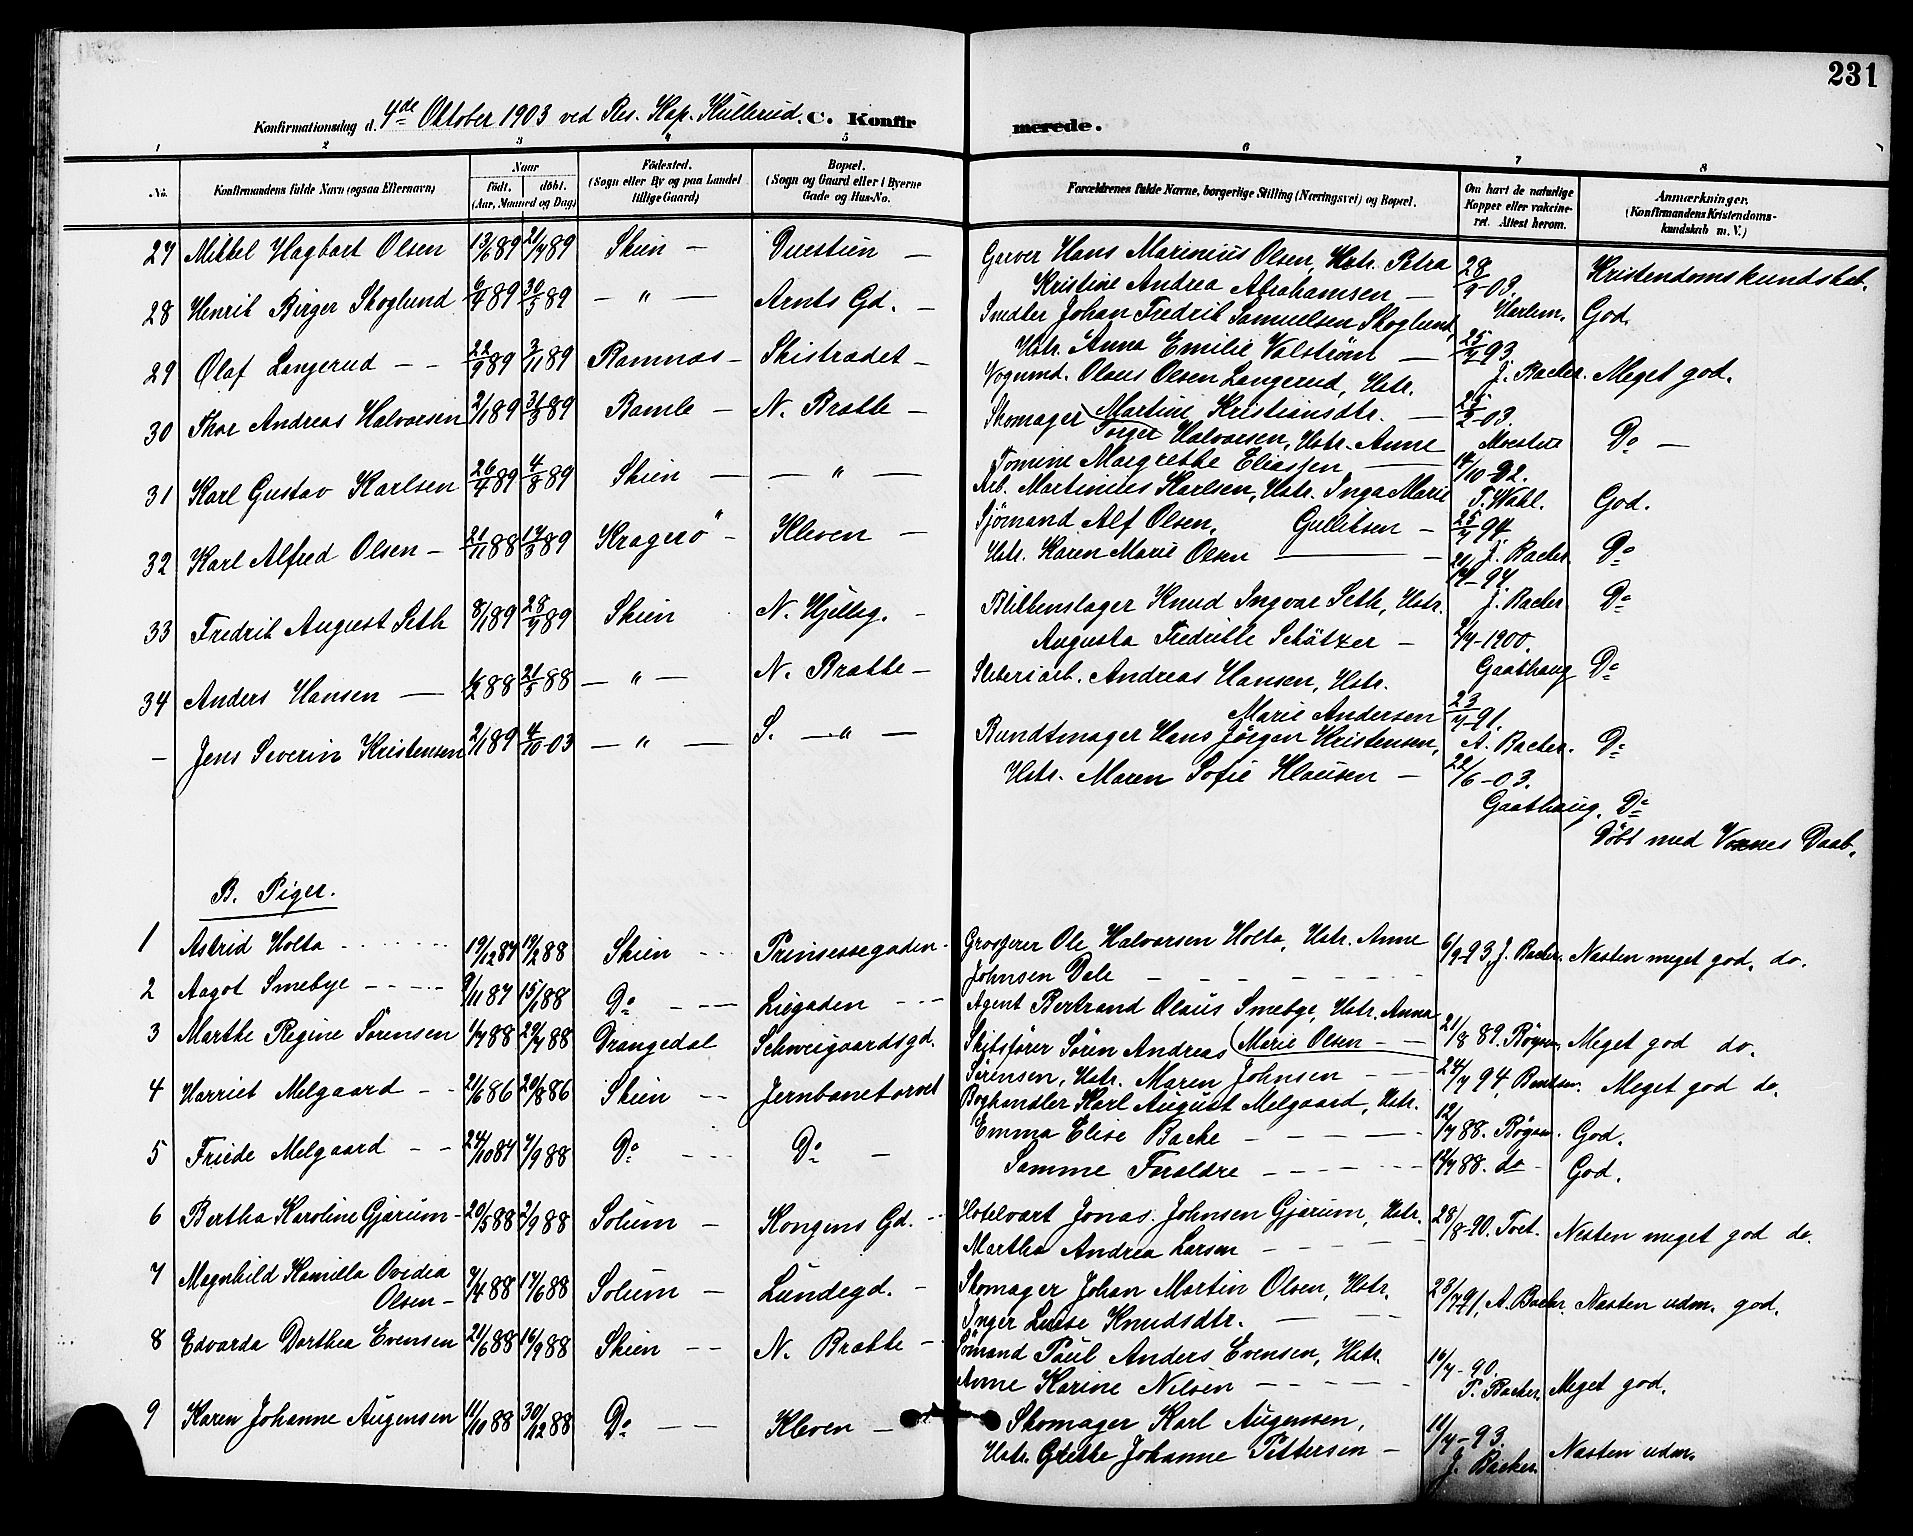 231
Konfirmationsdag d. 4de Oktober 1903 ved Res. Kap. Kullerud. C. Konfir merede.
1 2 3 4 5 6 7 8
No. Konfirmandens fulde Navn (ogsaa Efternavn) Naar født. døbt. (Aar, Maaned og Dag) Fødested. (Sogn eller By og paa Landet tillige Gaard) Bopæl. (Sogn og Gaard eller i Byerne Gade og Hus-No. Forældrenes fulde Navne, borgerlige Stilling (Næringsvei) og Bopæl. Om havt de naturlige Kopper eller vakcineret. Attest herom. Anmærkninger. (Konfirmandens Kristendomskundskab m. V.)
27 Mikkel Hagbart Olsen 13/6 89 21/7 89 Skien — Duestien — Garver Hans Marinius Olsen, Hstr. Petra
Kristine Andrea Abrahamsen — 28/9-03. Kristendomskundskab.
28 Henrik Birger Skoglund 6/4 89 30/5 89 — " — Arnts Gd. — Snedker Johan Fredrik Samuelsen Skoglund, Harlem. God.
Hstr. Anna Emilie Valstrøm — 25/4 93.
29 Olaf Langerud — — 22/9 89 3/11 89 Ramnæs — Skistredet — Vognmd. Olaus Olsen Langerud, Hstr. J. Backer. Meget god.
Martine Kristiansdtr. —
30 Thor Andreas Halvorsen 2/1 89 31/3 89 Bamle — N. Bratte — Skomager Torger Halvorsen, Hstr. Anne 25/2-03. Moestue Do —
Tomine Margrethe Eliassen —
31 Karl Gustav Karlsen 26/4 89 4/8 89 Skien — — " — Arb. Martinius Karlsen, Hstr. Inga Marie 14/10-92. T. Wahl. God.
Gullitsen —
32 Karl Alfred Olsen — 21/11 88 17/3 89 Kragerö — Kleven — Sjömand Alf Olsen, 25/4 94. J. Backer. Do
Hstr. Karen Marie Olsen —
33 Fredrik August Seth 8/1 89 28/9 89 Skien N. Hjelleg. — Blikkenslager Knud Ingvar Seth, Hstr. J. Backer. Do
Augusta Fredrikke Schätzer — 2/4-1900.
34 Anders Hansen — 6/2 88 21/5 88 — " — N. Bratte — Sliberiarb. Andreas Hansen, Hstr. Gaathaug Do
Marie Andersen 23/4-91.
— Jens Severin Kristensen 2/1 89 4/10-03 — " — S. — " — Bundtmager Hans Jörgen Kristensen, A. Backer. Do
Hstr. Maren Sofie Klausen — 22/6-03.
Gaathaug. Do
Döbt med Voxnes Daab.
B. Piger.
1 Astrid Holta 19/12 87 19/2 88 Skien Prinsessegaden — Grosserer Ole Halvorsen Holta, Hstr. Anne 6/9-93 J. Backer. Næsten meget god. do.
Johnsen Dale — — —
2 Aagot Smebye 9/11 87 15/1 88 Do Liegaden Agent Bertrand Olaus Smebye, Hstr. Anna
Marie Olsen — — 21/8 89. Böyum. Meget god do.
3 Marthe Regine Sörensen 1/7 88 29/7 88 Drangedal Schweigaardsgd. Skibsförer Sören Andreas
Sörensen, Hstr. Maren Johnsen — 24/7 94, Bentsen. Meget god do.
4 Harriet Melgaard — 21/6 86 20/8 86 Skien — Jernbanetorvet Boghandler Karl August Melgaard, Hstr.
Emma Elise Bache — 12/7 88. Böyum. God.
5 Friede Melgaard — 24/10 87 7/9 88 Do — Do — Samme Foraldre — 12/7 88. do God.
6 Bertha Karoline Gjærum — 20/5 88 2/9 88 Solum — Kongens Gd. Hotelvært Jonas Johnsen Gjærum, Hstr. 28/8-90. Tvet. Nesten meget god do.
Martha Andrea Larsen — —
7 Magnhild Kamilla Ovidia
Olsen — 7/4 88 17/6 88 Solum — Lundegd. — Skomager Johan Martin Olsen, Hstr. 23/7 91, A. Backer. Næsten udm. god.
Inger Lovise Knudsdtr. —
8 Edvarda Dorthea Evensen 21/6 88 16/9 88 Skien — N. Bratte — Sömand Paul Anders Evensen, Hstr.
Anne Karine Nilsen — — 16/7-90. P. Backer. Meget god.
9 Karen Johanne Augensen 11/10 88 30/12 88 Do — Kleven — Skomager Karl Augensen,
Hstr. Grethe Johanne Pettersen — 11/7-93. J. Backer. Næsten udm.